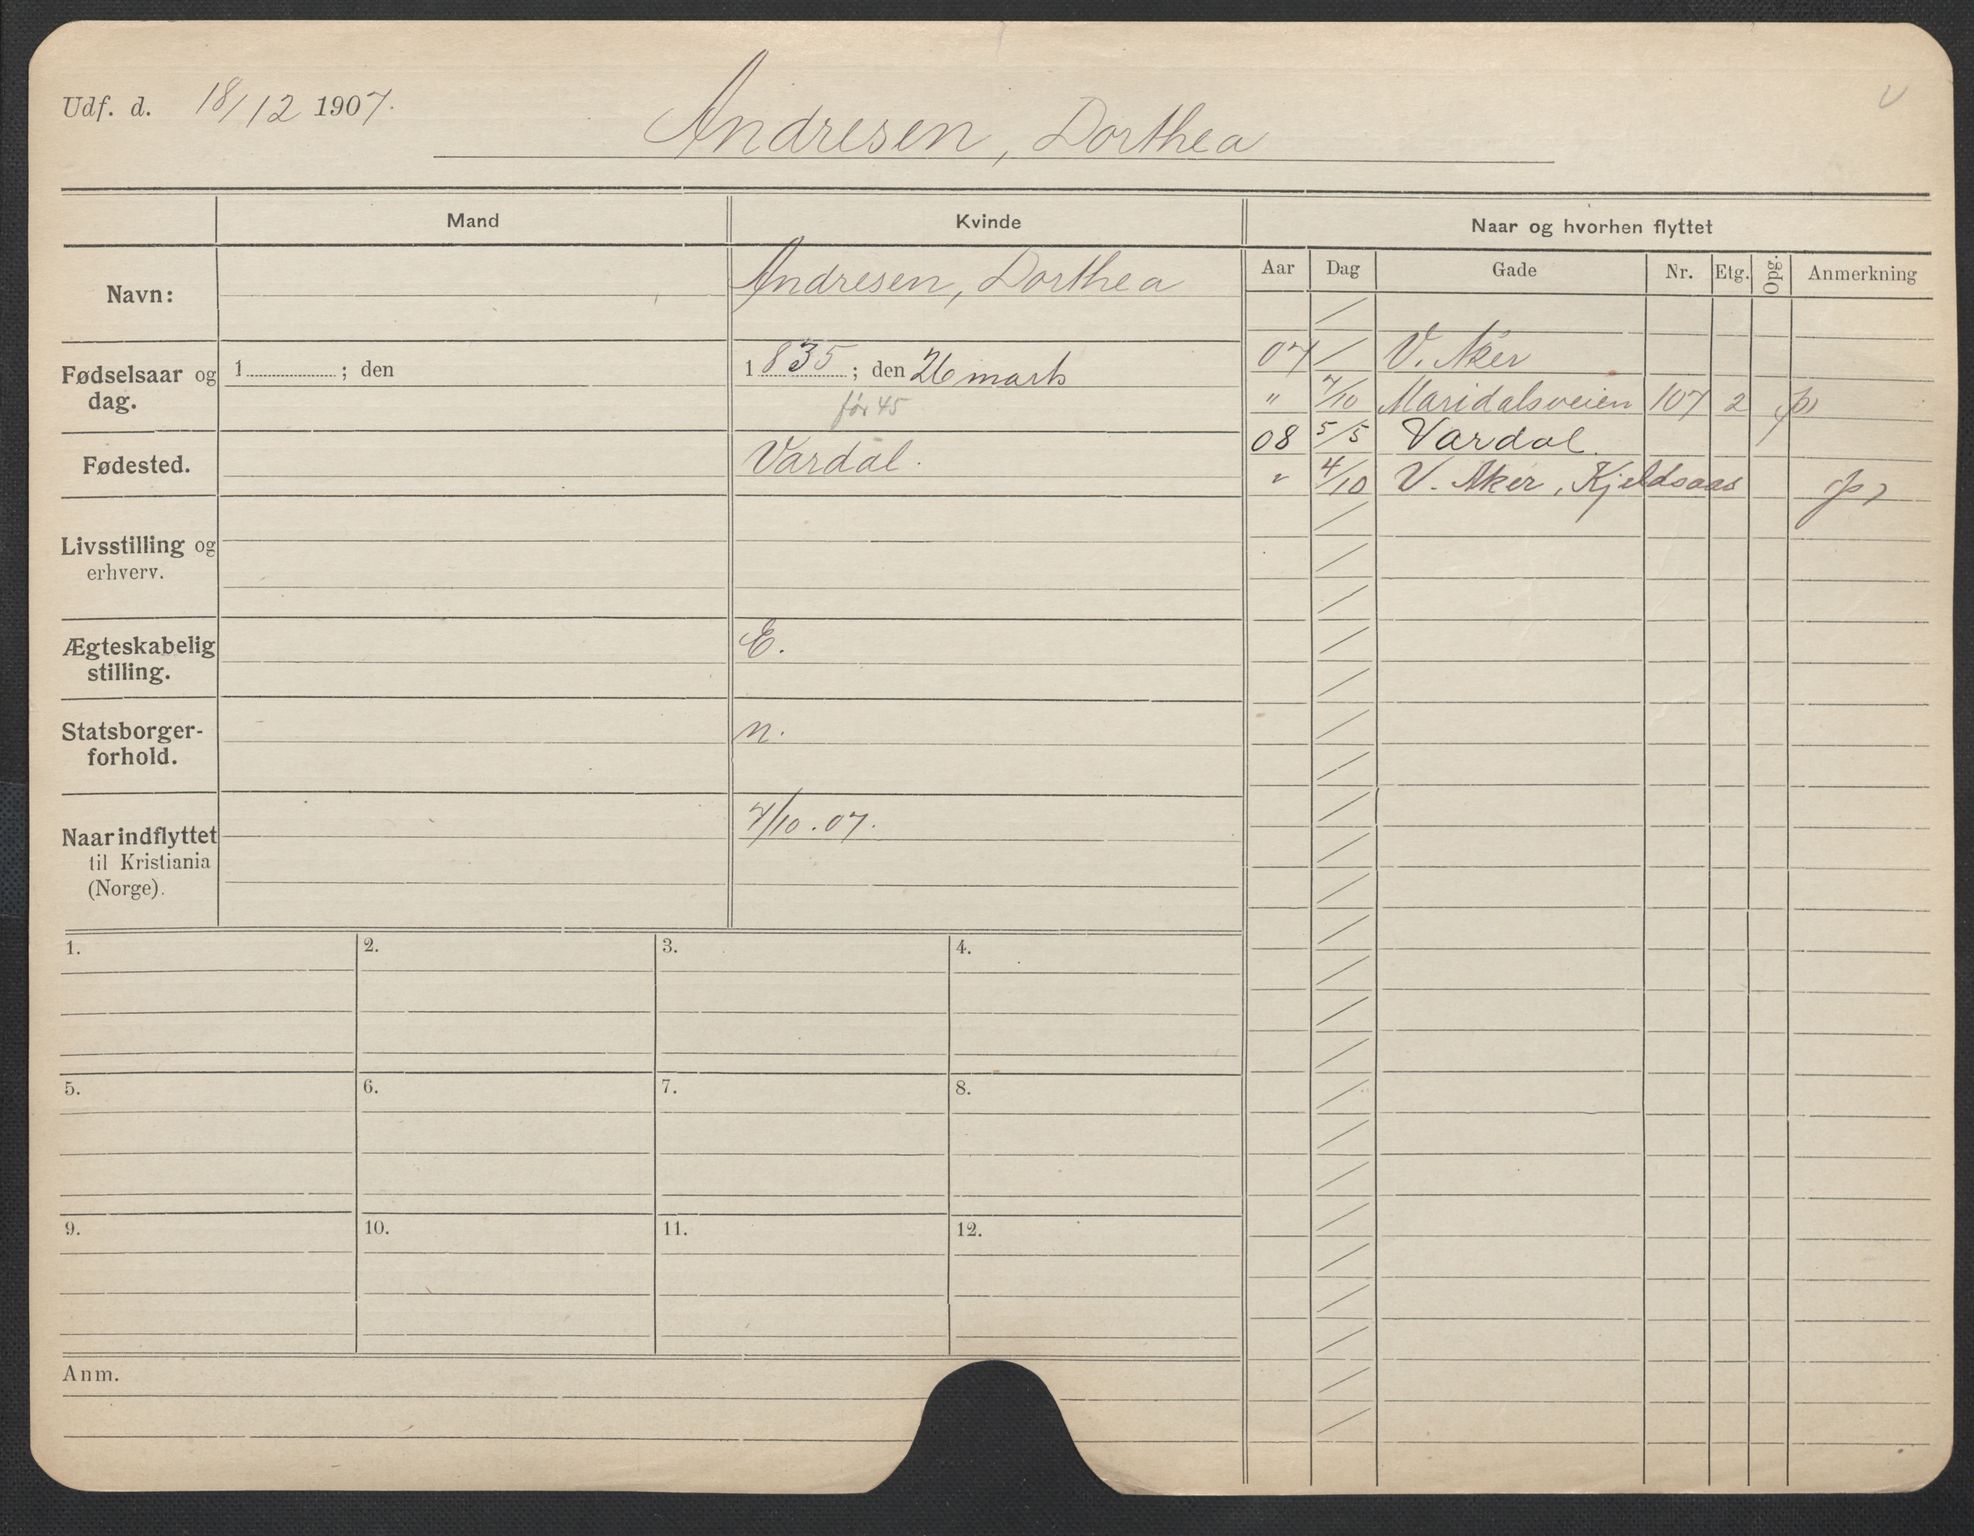 Udf. d. 18/12 1907.
Andresen, Dorthea
Mand
Kvinde
Naar og hvorhen flyttet
Navn:
Andresen, Dorthea
Aar Dag Gade Nr. Etg. Opg. Anmerkning
Fødselsaar og dag.
1 ; den
1835 ; den 26 marts
før 45
Fødested.
Vardal.
Livsstilling og
erhverv.
Ægteskabelig
stilling.
E.
Statsborger-
forhold.
n.
Naar indflyttet
til Kristiania
(Norge).
7/10.07.
07 / V. Aker
" 7/10 Maridalsveien 107 2
08 5/5 Vardal.
" 4/10 V. Aker, Kjeldsaas
1. 2. 3. 4.
5. 6. 7. 8.
9. 10. 11. 12.
Anm.